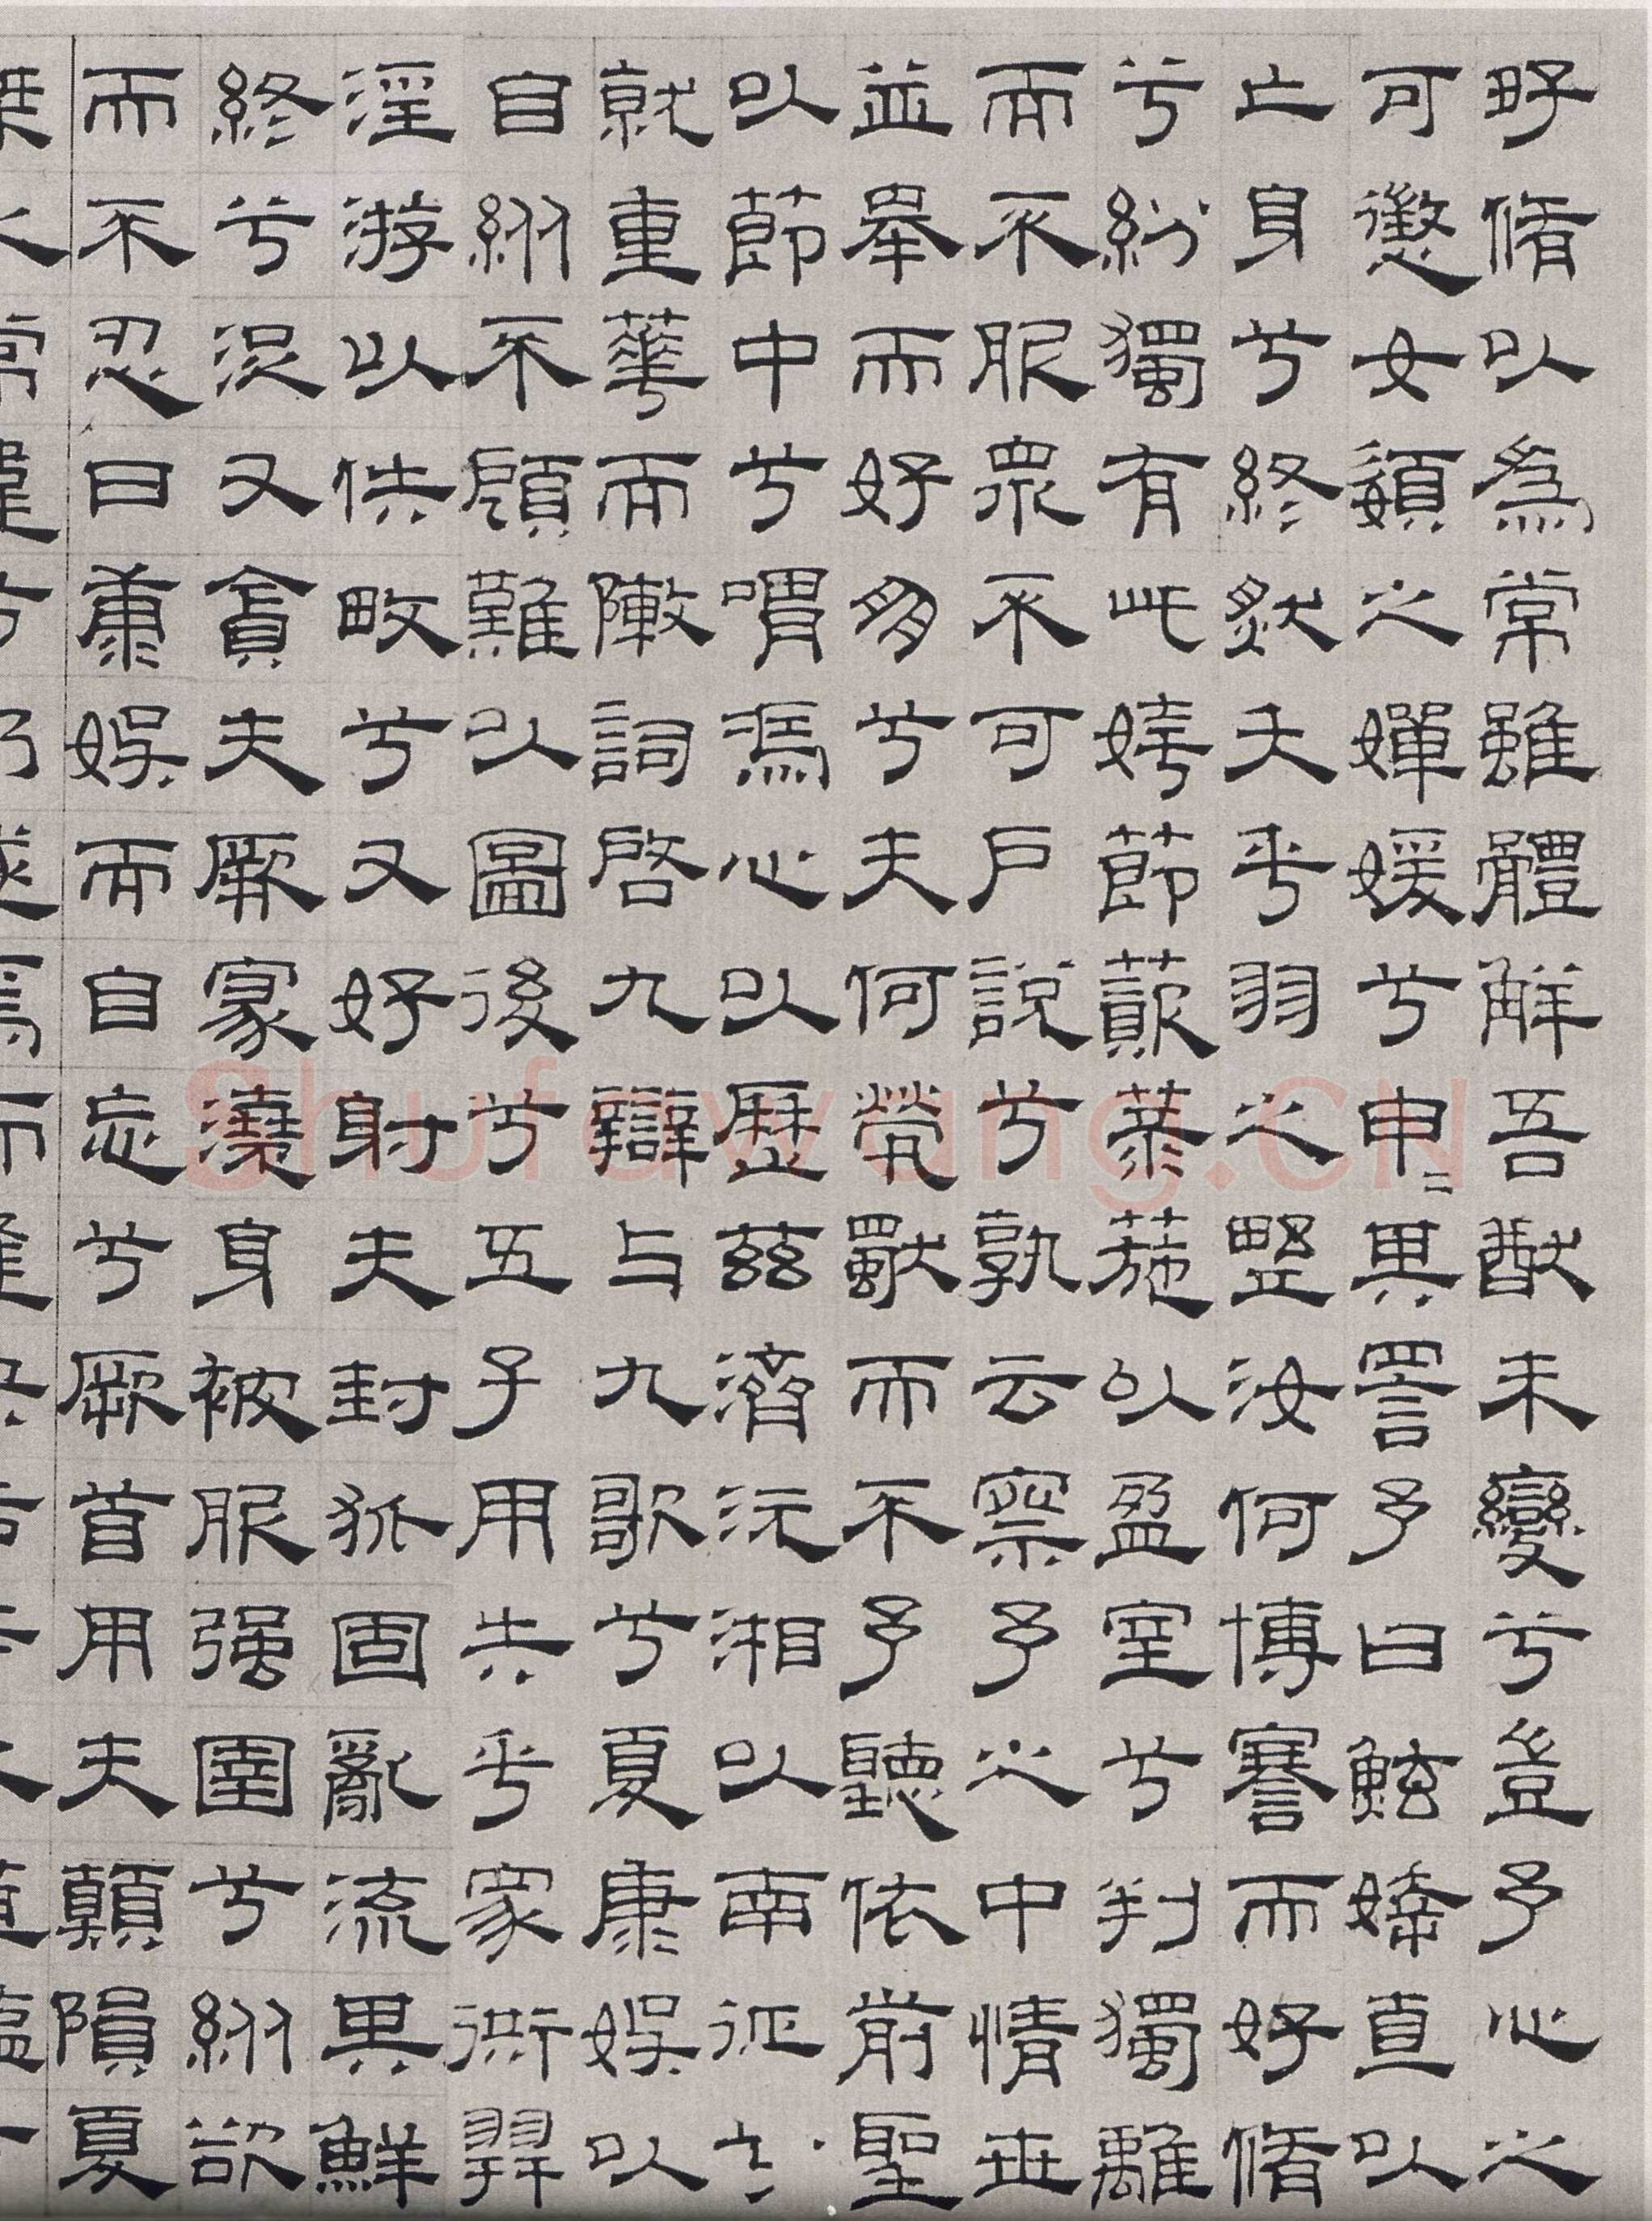 好脩以為常雖體解吾猷未變兮豈予心之
可懲女嬃之嬋媛兮申=其詈予曰鮌婞直以
亡身兮終然夭乎羽之野汝何博謇而好脩
兮紛獨有此姱節薋菉葹以盈室兮判獨離
而不服眾不可戶說兮孰云察予之中情世
並舉而好朋兮夫何煢獨而不予聽依前聖
以節中兮喟憑心以歷茲濟沅湘以南征兮
就重華而敶詞啓九辯与九歌兮夏康娛以
自縱不顧難以圖後兮五子用失乎家衖羿
淫游以佚畋兮又好射夫封狐固亂流其鮮
終兮浞又貪夫厥家澆身被服强圉兮縱欲
而不忍日康娛而自忘兮厥首用夫顛隕夏
Shufawang.CN